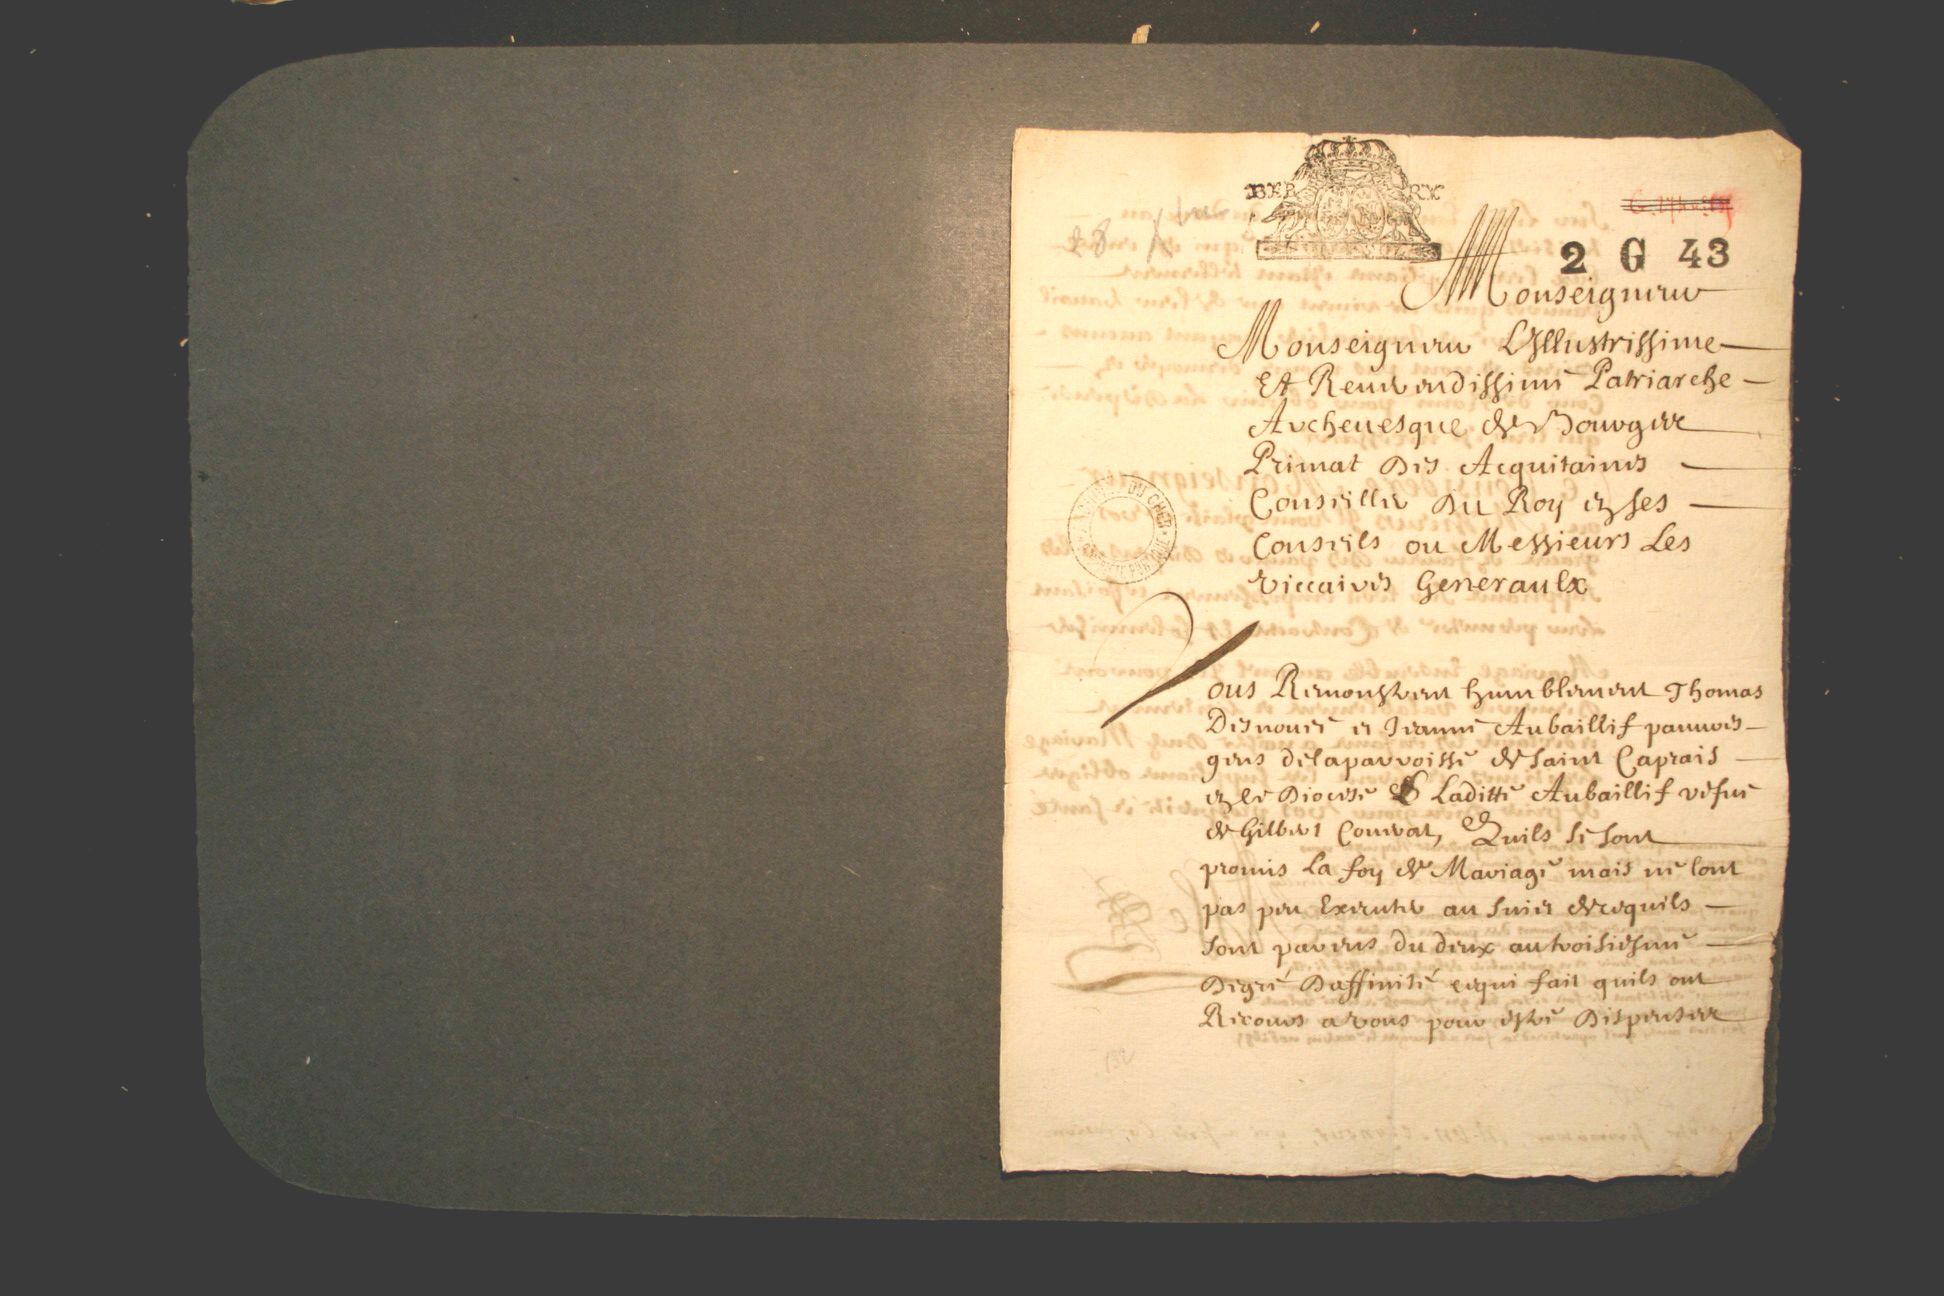 BER RY
2 G 43
Monseigneur
Monseigneur Lyllustrissime
Et Reuerendissime Patriarche
Archeuesque de Bourges
Primat des Acquitaines
Conseiller du Roy en ses
Conseils ou Messieurs Les
viccaires Generaulx
ARCHIVES DU CHER
PROPRIETE PUBLIQUE
Vous Remonstrent humblement Thomas
Desnoues et Jeanne Aubaillif pauures
gens de la parroisse de saint Caprais
en le Diocese & Laditte Aubaillif vefue
de Gilbert Couurat, Quils se sont
promis la foy de Mariage mais ne lont
pas peu Executer au suiet de ce quils
sont parens du deux au troisiesme
Degré Daffinité ce qui fait quils ont
Recours a vous pour estre Dispenser